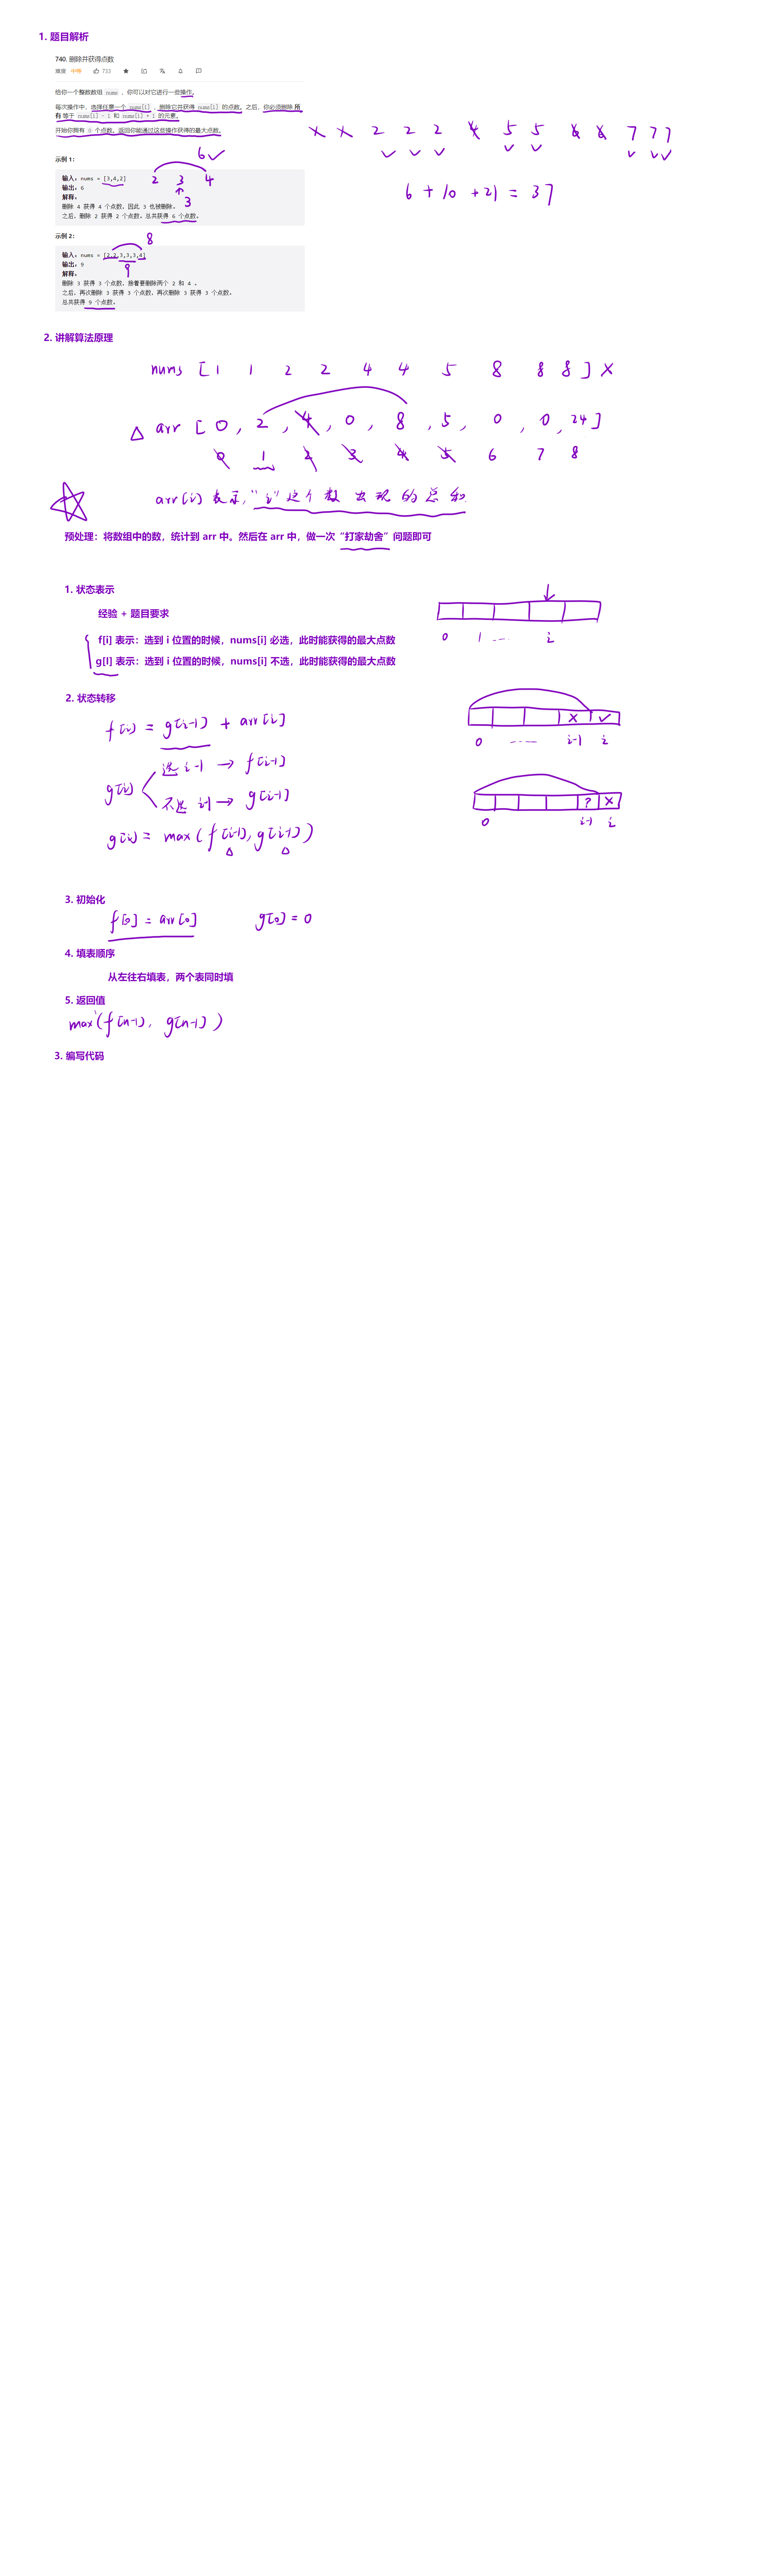 1. 题目解析
740. 删除并获得点数
难度 中等 733
给你一个整数数组 nums ，你可以对它进行一些操作。
每次操作中，选择任意一个 nums[i] ，删除它并获得 nums[i] 的点数。之后，你必须删除 所
有 等于 nums[i] - 1 和 nums[i] + 1 的元素。
开始你拥有 0 个点数。返回你能通过这些操作获得的最大点数。
2 2 2 4 5 5 6 6 7 7 7
6 + 10 + 21 = 37
示例 1：
6
输入：nums = [3,4,2]
2 3 4
输出：6
解释：
3
删除 4 获得 4 个点数，因此 3 也被删除。
之后，删除 2 获得 2 个点数。总共获得 6 个点数。
示例 2：
8
输入：nums = [2,2,3,3,3,4]
输出：9
9
解释：
删除 3 获得 3 个点数，接着要删除两个 2 和 4 。
之后，再次删除 3 获得 3 个点数，再次删除 3 获得 3 个点数。
总共获得 9 个点数。
2. 讲解算法原理
nums [ 1 1 2 2 4 4 5 8 8 8 ] ×
△ arr [ 0 , 2 , 4 , 0 , 8 , 5 , 0 , 0 , 24 ]
0 1 2 3 4 5 6 7 8
arr[i] 表示, "i" 这个数 出现的总和
预处理：将数组中的数，统计到 arr 中。然后在 arr 中，做一次 “打家劫舍” 问题即可
1. 状态表示
经验 + 题目要求
f[i] 表示：选到 i 位置的时候，nums[i] 必选，此时能获得的最大点数
0 1 ... i
g[i] 表示：选到 i 位置的时候，nums[i] 不选，此时能获得的最大点数
2. 状态转移
f[i] = g[i-1] + arr[i]
× ✓
0 ... i-1 i
g[i]
选 i-1 → f[i-1]
不选 i-1 → g[i-1]
? ×
0 i-1 i
g[i] = max ( f[i-1], g[i-1] )
△ △
3. 初始化
f[0] = arr[0] g[0] = 0
4. 填表顺序
从左往右填表，两个表同时填
5. 返回值
max ( f[n-1], g[n-1] )
3. 编写代码